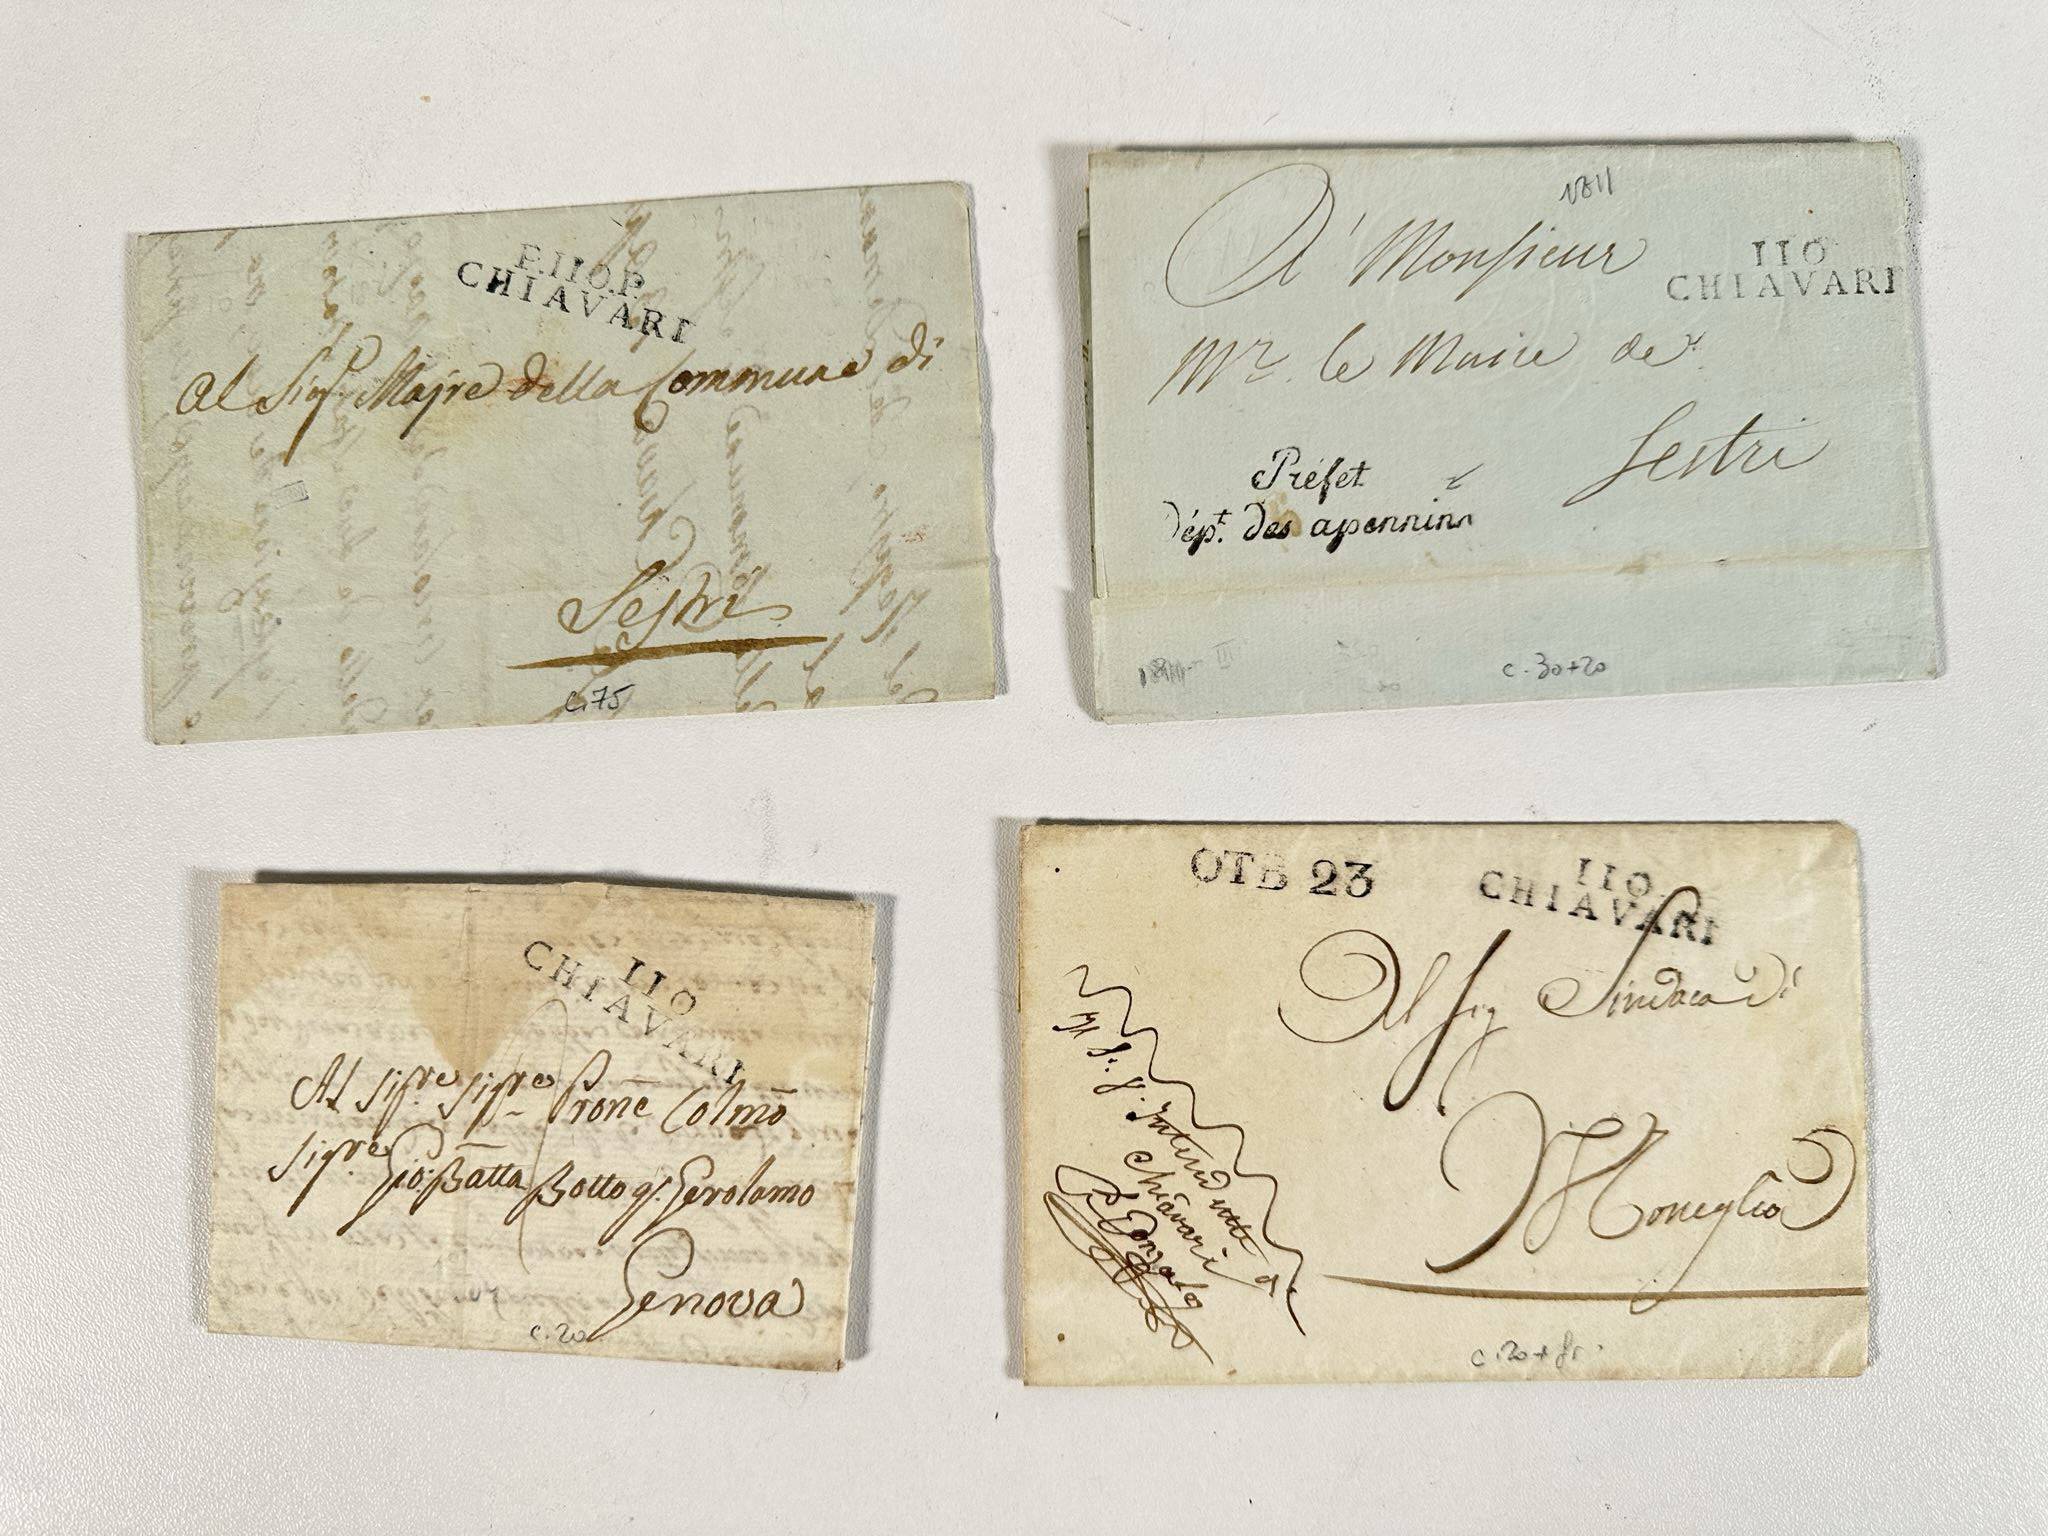 P.110.P.
CHIAVARI
Al Sig.r Majre della Commune di
Sestri
c.75
1811
A' Monsieur
110
CHIAVARI
Mr. le Maire de
Sestri
Préfet
dépt. des apennins
c. 30+20
110
CHIAVARI
Al Sigre Sigre Prone Colmo
Sigre Gio: Batta Botto q. Gerolamo
Genova
c. 20
OTB 23
110
CHIAVARI
Al Sig Sindaco di
Moneglia
Intendente
Chiavari
c. 20 + fr.